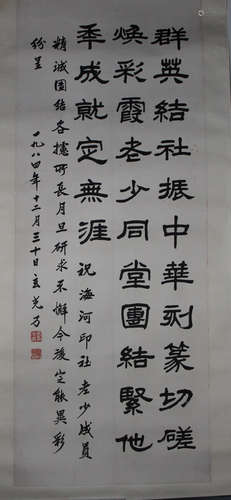 群英結社振中華刻篆切磋
煥彩霞老少同堂團結緊他
季成就定無涯 祝海河印社老少成員
精诚团结各擅所長月旦研求不懈今後定能異彩
纷呈 一九八四年十二月三十日